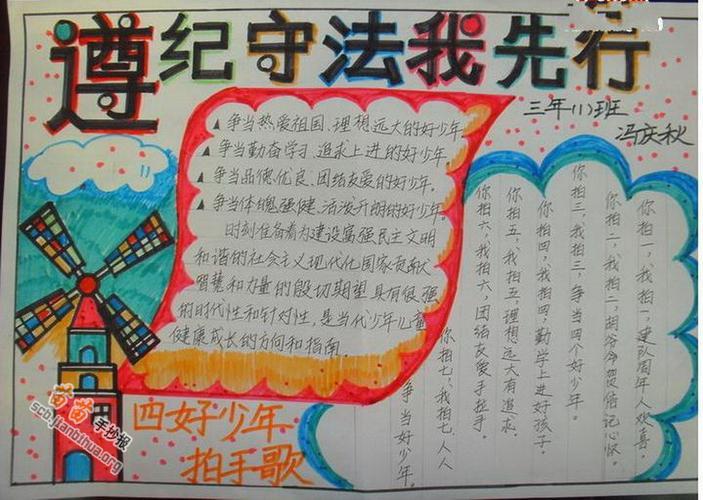 遵纪守法我先行
三年(1)班
冯庆秋
▲争当热爱祖国、理想远大的好少年
▲争当勤奋学习、追求上进的好少年、
▲争当品德优良、团结友爱的好少年、
▲争当体魄强健、活泼开朗的好少年。
时刻准备着为建设富强民主文明
和谐的社会主义现代化国家贡献
智慧和力量的殷切期望具有很强
的时代性和针对性，是当代少年儿童
健康成长的方向和指南。
四好少年
拍手歌
你拍一，我拍一，建队周年人欢喜。
你拍二，我拍二，胡爷爷贺信记心怀。
你拍三，我拍三，争当四个好少年。
你拍四，我拍四，勤学上进好孩子。
你拍五，我拍五，理想远大有追求。
你拍六，我拍六，团结友爱手拉手。
你拍七，我拍七，人人
争当好少年。
苗苗手抄报
scb.jianbihua.org